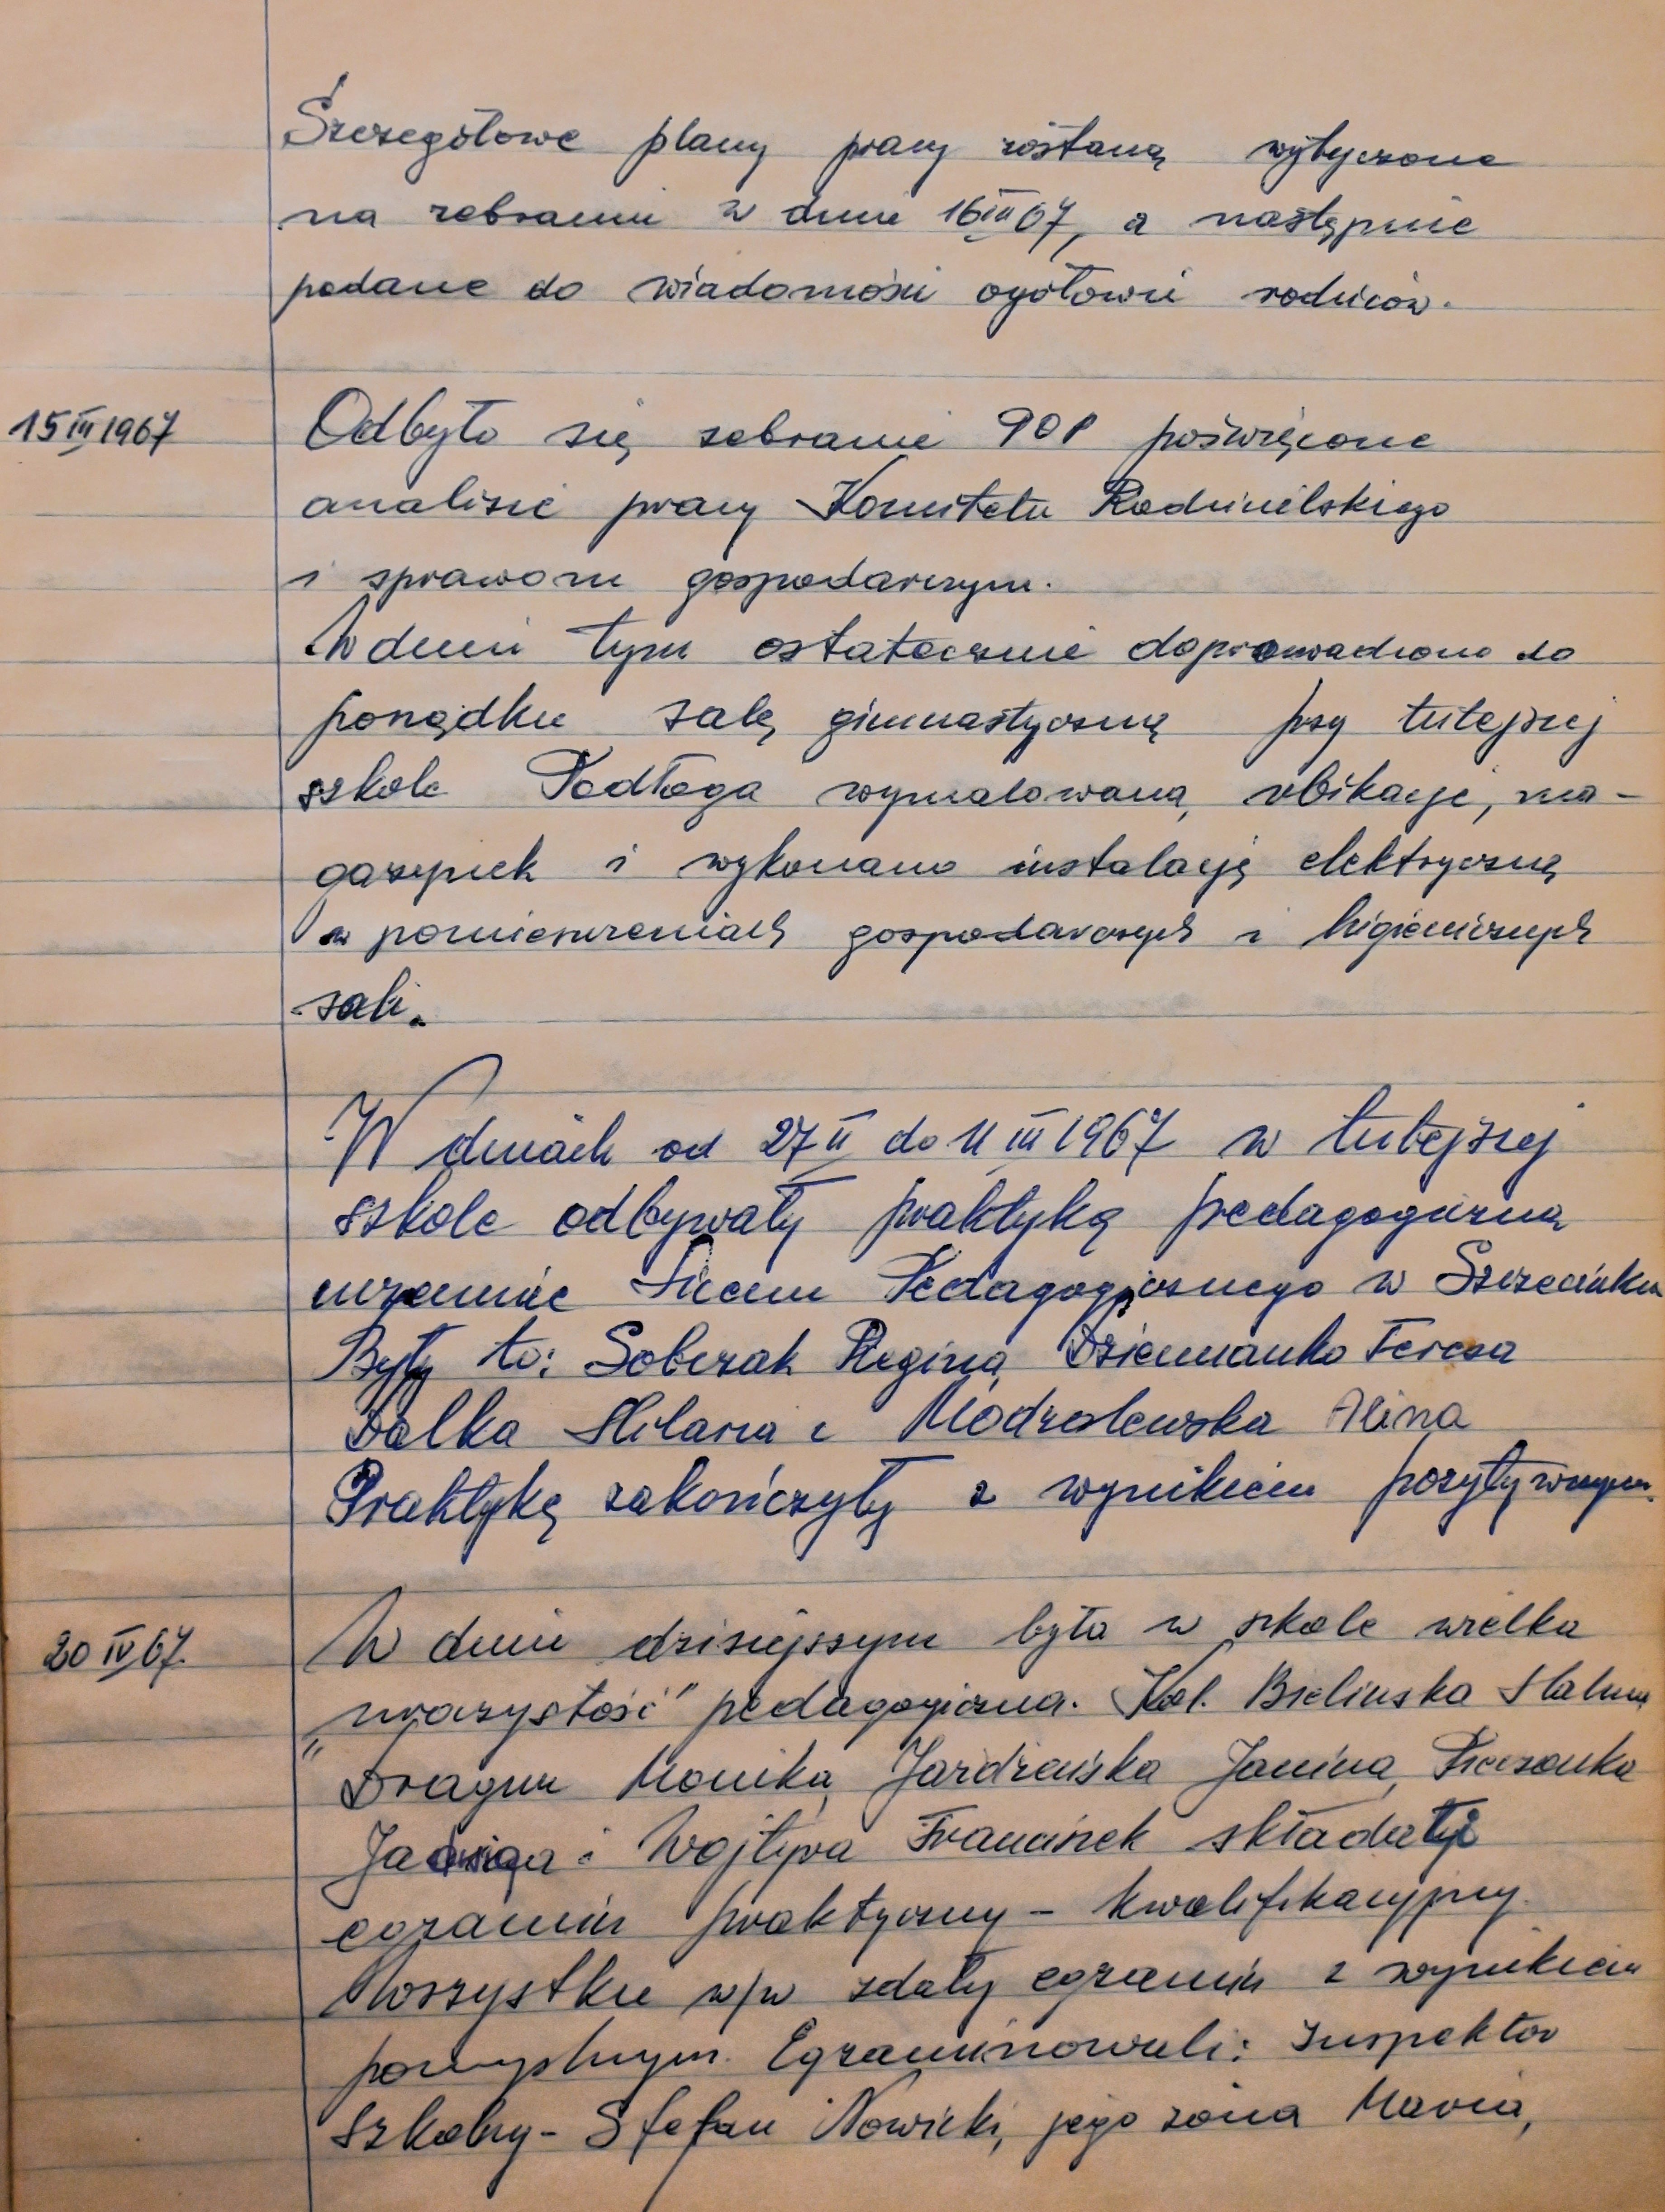 Szczegółowe plany pracy zostaną wytyczone
na zebraniu w dniu 16 III 67, a następnie
podane do wiadomości ogółowi rodziców.
15 III 1967
Odbyło się zebranie POP poświęcone
analizie pracy Komitetu Rodzicielskiego
i sprawom gospodarczym.
W dniu tym ostatecznie doprowadzono do
porządku salę gimnastyczną przy tutejszej
szkole Podłoga wymalowana, ubikacje, ma-
gazynek i wykonano instalację elektryczną
w pomieszczeniach gospodarczych i higienicznych
sali.
W dniach od 27 II do 11 III 1967 w tutejszej
szkole odbywały praktykę pedagogiczną
uczennice Liceum Pedagogicznego w Szczecinku
Były to: Sobczak Regina, Dziemianko Teresa
Dalka Hilaria i Modrzelewska Alina
Praktykę zakończyły z wynikiem pozytywnym.
20 IV 67.
W dniu dzisiejszym była w szkole wielka
„uroczystość" pedagogiczna. Kol. Bielinska Halina
Dragun Monika, Jardzeńska Janina,
Jadwiga i Wojtywa Franciszek składały
egzamin praktyczny - kwalifikacyjny.
Wszystkie w/w zdały egzamin z wynikiem
pomyślnym. Egzaminowali: Inspektor
Szkolny - Stefan Nowicki, jego żona Maria,